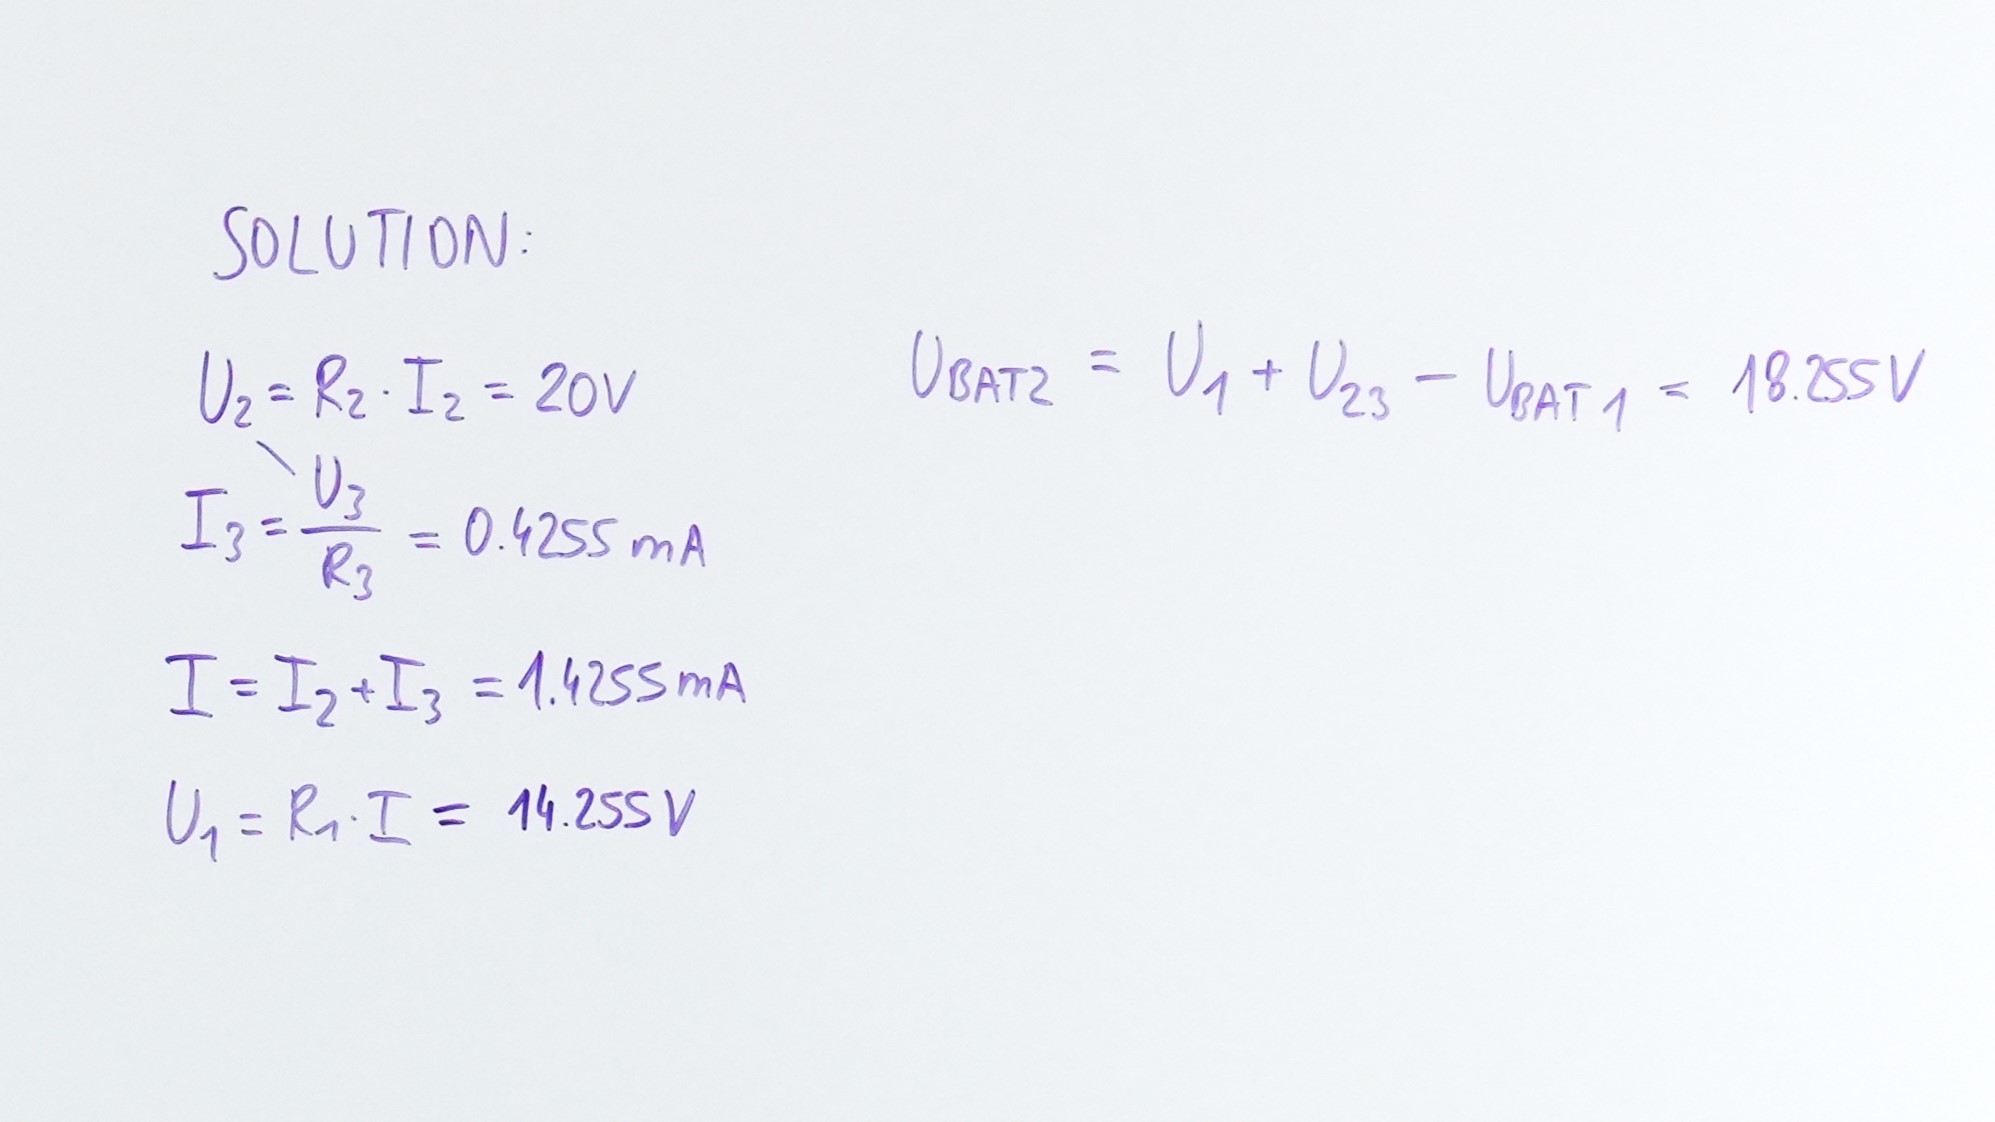 SOLUTION:
U₂ = R₂ · I₂ = 20V
I₃ = U₃ / R₃ = 0.4255 mA
I = I₂ + I₃ = 1.4255 mA
U₁ = R₁ · I = 14.255 V
U_BAT2 = U₁ + U₂₃ − U_BAT1 = 18.255 V